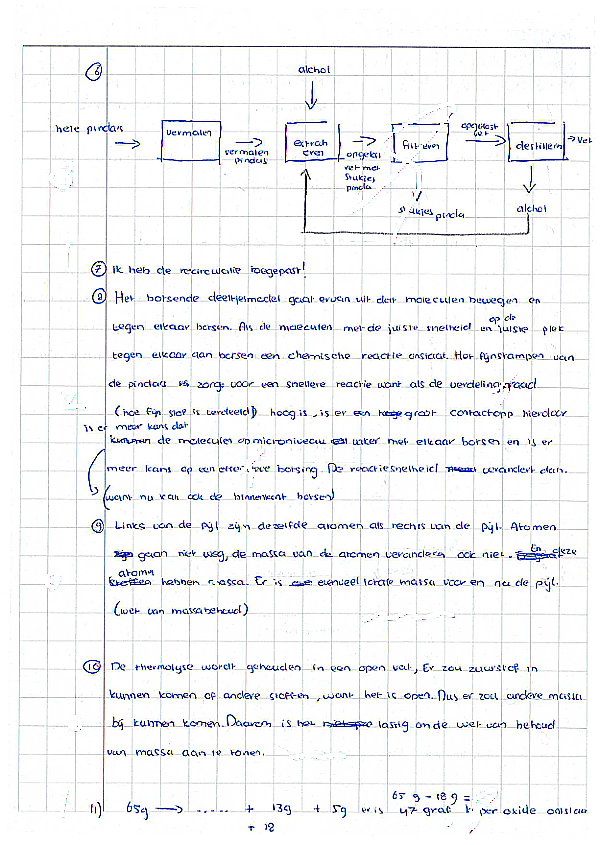 6
alchol
hele pindas
vermalen
vermalen pindas
extrah eren
ongelost vet met stukjes pinda
filtreren
opgelost vet
destilleren
Vet
stukjes pinda
alchol
7 Ik heb de recirculatie toegepast!
8 Het botsende deeltjesmodel gaat ervan uit dat moleculen bewegen en
tegen elkaar botsen. Als de moleculen met de juiste snelheid en op de juiste plek
tegen elkaar aan botsen een chemische reactie ontstaat. Het fijnstampen van
de pindas zorgt voor een snellere reactie want als de verdelingsgraad
(hoe fijn stof is verdeeld) hoog is, is er een groot contactopp hierdoor
is er meer kans dat
de moleculen op microniveau vaker met elkaar botsen en is er
meer kans op een effectieve botsing. De reactiesnelheid verandert dan.
(want nu kan ook de binnenkant botsen)
9 Links van de pijl zijn dezelfde atomen als rechts van de pijl. Atomen
gaan niet weg, de massa van de atomen veranderen ook niet. En deze
atomen hebben massa. Er is evenveel totale massa voor en na de pijl.
(wet van massabehoud)
10 De thermolyse wordt gehouden in een open vat, Er zou zuurstof in
kunnen komen of andere stoffen, want het is open. Dus er zou andere massa
bij kunnen komen. Daarom is het lastig om de wet van behoud
van massa aan te tonen.
65 g - 18 g =
11) 65g → ..... + 13g + 5g er is 47 graf per oxide ontstaan
+ 18